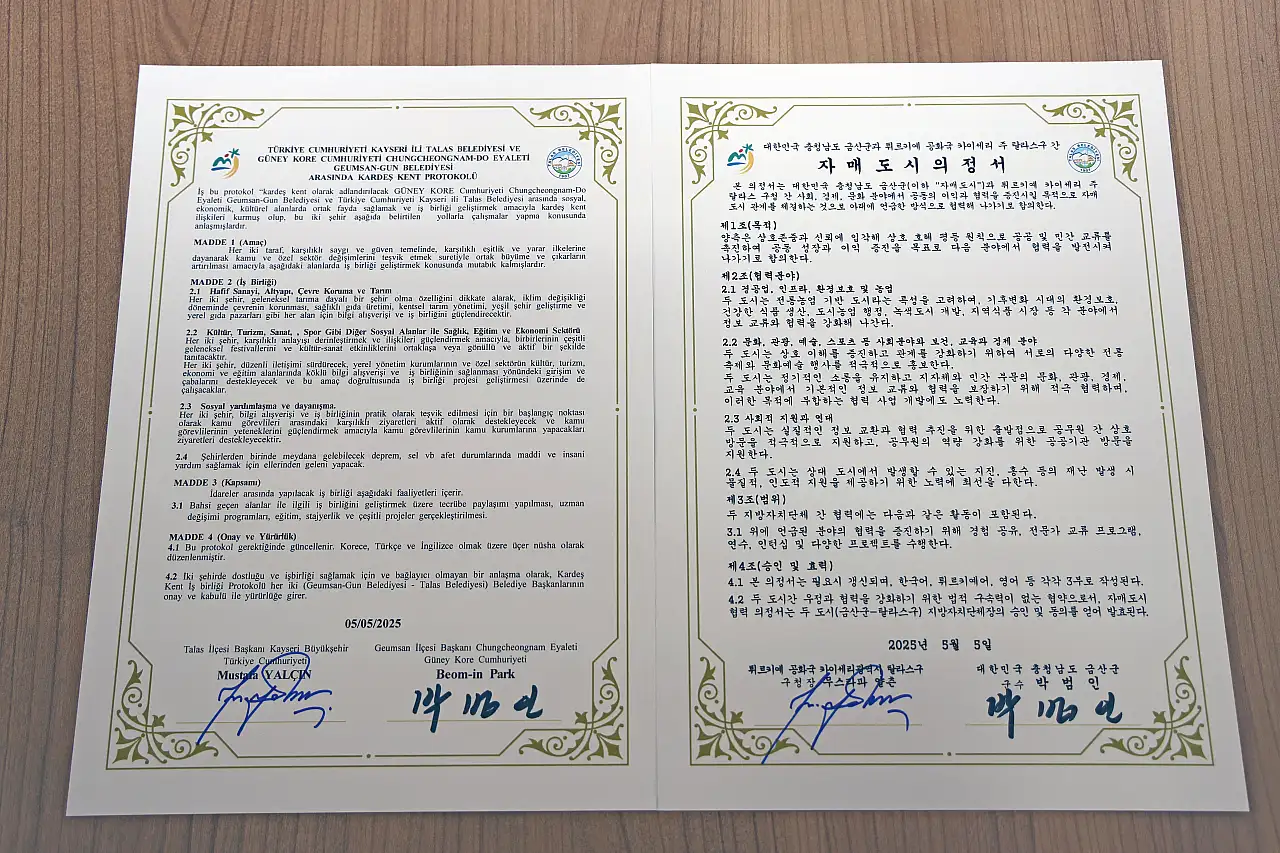 TÜRKİYE CUMHURİYETİ KAYSERİ İLİ TALAS BELEDİYESİ VE
GÜNEY KORE CUMHURİYETİ CHUNGCHEONGNAM-DO EYALETİ
GEUMSAN-GUN BELEDİYESİ
ARASINDA KARDEŞ KENT PROTOKOLÜ
İş bu protokol “kardeş kent olarak adlandırılacak GÜNEY KORE Cumhuriyeti Chungcheongnam-Do
Eyaleti Geumsan-Gun Belediyesi ve Türkiye Cumhuriyeti Kayseri ili Talas Belediyesi arasında sosyal,
ekonomik, kültürel alanlarda ortak fayda sağlamak ve iş birliği geliştirmek amacıyla kardeş kent
ilişkileri kurmuş olup, bu iki şehir aşağıda belirtilen yollarla çalışmalar yapma konusunda
anlaşmışlardır.
MADDE 1 (Amaç)
Her iki taraf, karşılıklı saygı ve güven temelinde, karşılıklı eşitlik ve yarar ilkelerine
dayanarak kamu ve özel sektör değişimlerini teşvik etmek suretiyle ortak büyüme ve çıkarların
artırılması amacıyla aşağıdaki alanlarda iş birliği geliştirmek konusunda mutabık kalmışlardır.
MADDE 2 (İş Birliği)
2.1 Hafif Sanayi, Altyapı, Çevre Koruma ve Tarım
Her iki şehir, geleneksel tarıma dayalı bir şehir olma özelliğini dikkate alarak, iklim değişikliği
döneminde çevrenin korunması, sağlıklı gıda üretimi, kentsel tarım yönetimi, yeşil şehir geliştirme ve
yerel gıda pazarları gibi her alan için bilgi alışverişi ve iş birliğini güçlendirecektir.
2.2 Kültür, Turizm, Sanat, , Spor Gibi Diğer Sosyal Alanlar ile Sağlık, Eğitim ve Ekonomi Sektörü
Her iki şehir, karşılıklı anlayışı derinleştirmek ve ilişkileri güçlendirmek amacıyla, birbirlerinin çeşitli
geleneksel festivallerini ve kültür-sanat etkinliklerini ortaklaşa veya gönüllü ve aktif bir şekilde
tanıtacaktır.
Her iki şehir, düzenli iletişimi sürdürecek, yerel yönetim kurumlarının ve özel sektörün kültür, turizm,
ekonomi ve eğitim alanlarında köklü bilgi alışverişi ve iş birliğinin sağlanması yönündeki girişim ve
çabalarını destekleyecek ve bu amaç doğrultusunda iş birliği projesi geliştirmesi üzerinde de
çalışacaklar.
2.3 Sosyal yardımlaşma ve dayanışma.
Her iki şehir, bilgi alışverişi ve iş birliğinin pratik olarak teşvik edilmesi için bir başlangıç noktası
olarak kamu görevlileri arasındaki karşılıklı ziyaretleri aktif olarak destekleyecek ve kamu
görevlilerinin yeteneklerini güçlendirmek amacıyla kamu görevlilerinin kamu kurumlarına yapacakları
ziyaretleri destekleyecektir.
2.4 Şehirlerden birinde meydana gelebilecek deprem, sel vb afet durumlarında maddi ve insani
yardım sağlamak için ellerinden geleni yapacak.
MADDE 3 (Kapsamı)
İdareler arasında yapılacak iş birliği aşağıdaki faaliyetleri içerir.
3.1 Bahsi geçen alanlar ile ilgili iş birliğini geliştirmek üzere tecrübe paylaşımı yapılması, uzman
değişimi programları, eğitim, stajyerlik ve çeşitli projeler gerçekleştirilmesi.
MADDE 4 (Onay ve Yürürlük)
4.1 Bu protokol gerektiğinde güncellenir. Korece, Türkçe ve İngilizce olmak üzere üçer nüsha olarak
düzenlenmiştir.
4.2 İki şehirde dostluğu ve işbirliği sağlamak için ve bağlayıcı olmayan bir anlaşma olarak, Kardeş
Kent İş birliği Protokolü her iki (Geumsan-Gun Belediyesi - Talas Belediyesi) Belediye Başkanlarının
onay ve kabulü ile yürürlüğe girer.
05/05/2025
Talas İlçesi Başkanı Kayseri Büyükşehir
Türkiye Cumhuriyeti
Mustafa YALÇIN
Geumsan İlçesi Başkanı Chungcheongnam Eyaleti
Güney Kore Cumhuriyeti
Beom-in Park
박 범 인
대한민국 충청남도 금산군과 튀르키예 공화국 카이세리 주 탈라스구 간
자 매 도 시 의 정 서
본 의정서는 대한민국 충청남도 금산군(이하 "자매도시")과 튀르키예 카이세리 주
탈라스 구청 간 사회, 경제, 문화 분야에서 공동의 이익과 협력을 증진시킬 목적으로 자매
도시 관계를 체결하는 것으로 아래에 언급한 방식으로 협력해 나가기로 합의한다.
제1조(목적)
양측은 상호존중과 신뢰에 입각해 상호 호혜 평등 원칙으로 공공 및 민간 교류를
촉진하여 공동 성장과 이익 증진을 목표로 다음 분야에서 협력을 발전시켜
나가기로 합의한다.
제2조(협력분야)
2.1 경공업, 인프라, 환경보호 및 농업
두 도시는 전통농업 기반 도시라는 특성을 고려하여, 기후변화 시대의 환경보호,
건강한 식품 생산, 도시농업 행정, 녹색도시 개발, 지역식품 시장 등 각 분야에서
정보 교류와 협력을 강화해 나간다.
2.2 문화, 관광, 예술, 스포츠 등 사회분야와 보건, 교육과 경제 분야
두 도시는 상호 이해를 증진하고 관계를 강화하기 위하여 서로의 다양한 전통
축제와 문화예술 행사를 적극적으로 홍보한다.
두 도시는 정기적인 소통을 유지하고 지자체와 민간 부문의 문화, 관광, 경제,
교육 분야에서 기본적인 정보 교류와 협력을 보장하기 위해 적극 협력하며,
이러한 목적에 부합하는 협력 사업 개발에도 노력한다.
2.3 사회적 지원과 연대
두 도시는 실질적인 정보 교환과 협력 추진을 위한 출발점으로 공무원 간 상호
방문을 적극적으로 지원하고, 공무원의 역량 강화를 위한 공공기관 방문을
지원한다.
2.4 두 도시는 상대 도시에서 발생할 수 있는 지진, 홍수 등의 재난 발생 시
물질적, 인도적 지원을 제공하기 위한 노력에 최선을 다한다.
제3조(범위)
두 지방자치단체 간 협력에는 다음과 같은 활동이 포함된다.
3.1 위에 언급된 분야의 협력을 증진하기 위해 경험 공유, 전문가 교류 프로그램,
연수, 인턴십 및 다양한 프로젝트를 수행한다.
제4조(승인 및 효력)
4.1 본 의정서는 필요시 갱신되며, 한국어, 튀르키예어, 영어 등 각각 3부로 작성된다.
4.2 두 도시간 우정과 협력을 강화하기 위한 법적 구속력이 없는 협약으로서, 자매도시
협력 의정서는 두 도시(금산군-탈라스구) 지방자치단체장의 승인 및 동의를 얻어 발효된다.
2025년 5월 5일
튀르키예 공화국 카이세리광역시 탈라스구
구청장 무스타파 얄츤
대한민국 충청남도 금산군
군수 박 범 인
박 범 인